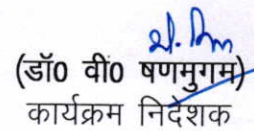 (डॉ0 वी0 षणमुगम)
कार्यक्रम निदेशक